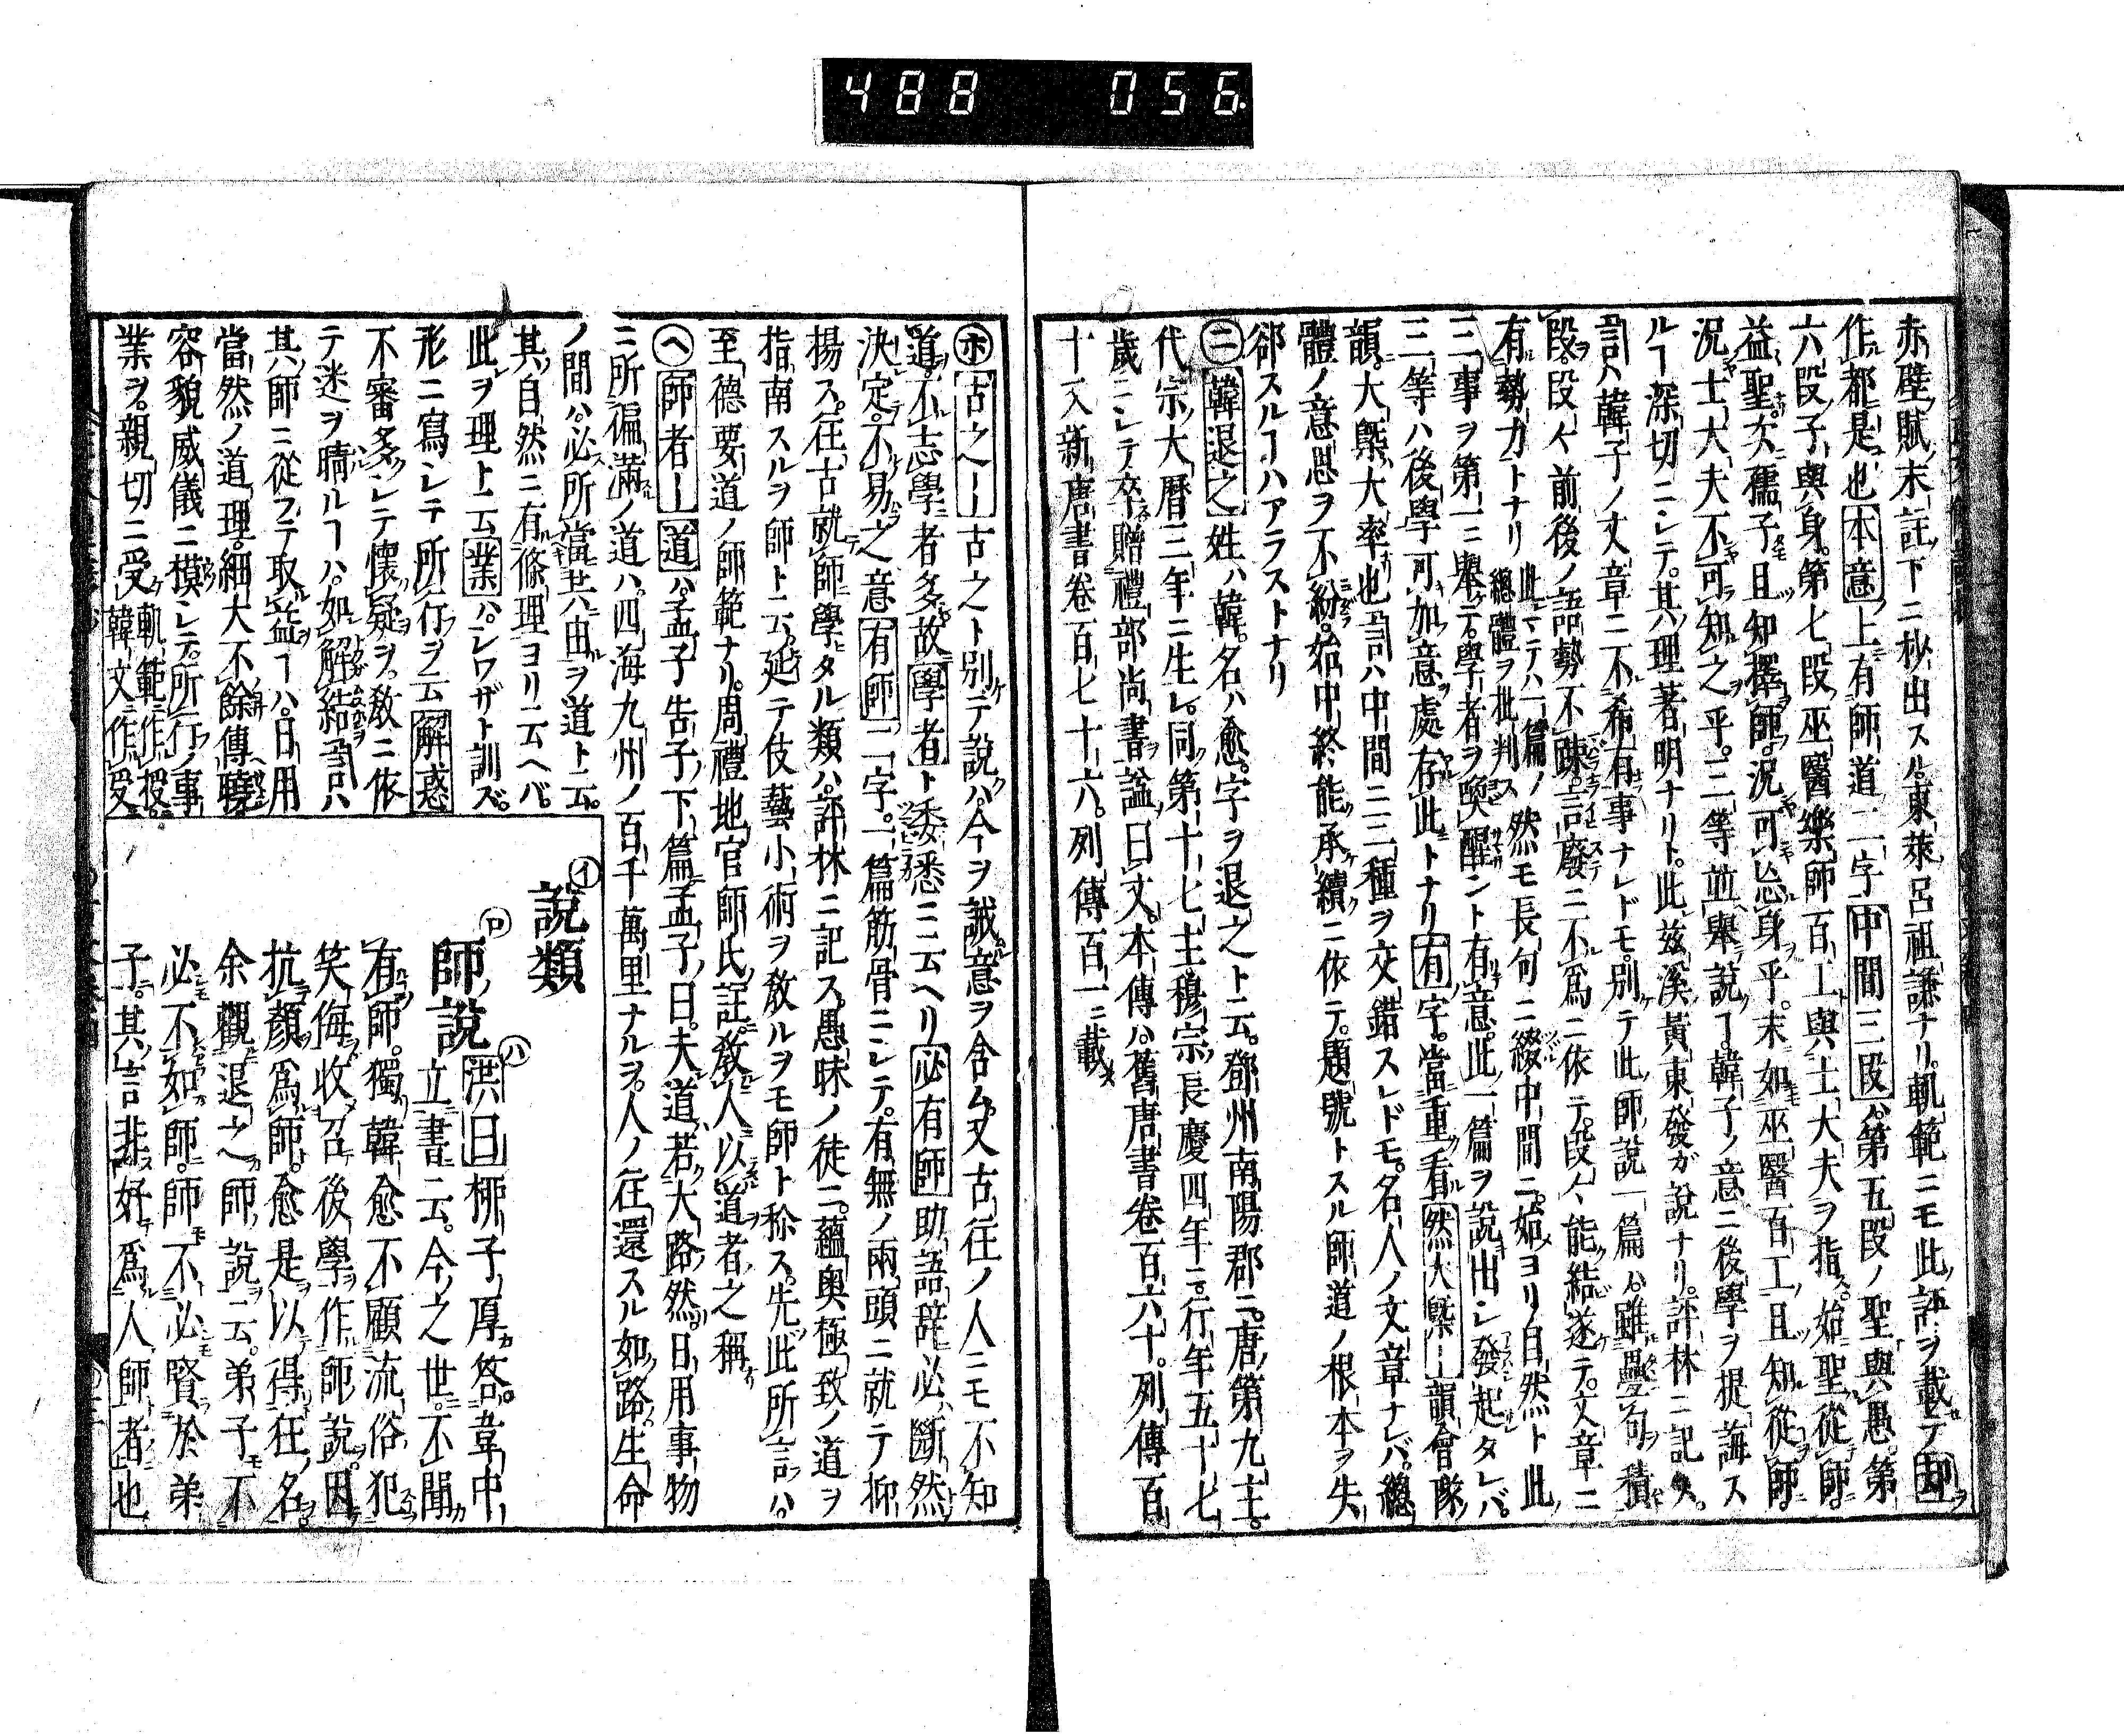 488 056
赤壁賦ノ末ノ註ノ下ニ抄出スル東萊呂祖謙ナリ軌範ニモ此ノ評ヲ載テ迂
作ル都是也本意上ニ有師道ノ二字中間三段ハ第五段ノ聖與愚第
六段ノ子ト與身第七ノ段ノ巫醫樂師百工ト與士大夫ヲ指ス始聖從師
益聖矣孺子且知擇師況可忘身乎末如巫醫百工且知從師
況士大夫不可知之乎三等並ヘ舉テ說ク丁韓子ノ意ニ後學ヲ提誨ス
ル丁深切ニシテ其ノ理著明ナリト此茲溪黃東發ガ說ナリ評林ニ記ス
訁ハ韓子ノ文章ニ不希有事ナレドモ別テ此師說ノ一篇ハ雖疊句ヲ積
段ヲ段々前後ノ語勢不踈言廢ニ不為ニ依テ段々能結ビ遂テ文章ニ
有勢力トナリ此マテハ一篇ノ總體ヲ批判ス然モ長句ニ綴中間ニ始ヨリ自然ト此ノ
三事ヲ第一ニ舉テ學者ヲ喚醒ント有意此ノ一篇ヲ說出シ發起タレバ
三等ハ後學可加意處存此トナリ有字當重看然大槩―韻會隊
韻大槩ハ大率也訁ハ中間ニ三種ヲ交錯スレドモ名人ノ文章ナレバ總
體ノ意思ヲ不紛始中終能承續ニ依テ題號トスル師道ノ根本ヲ失
郤スル丁ハアラストナリ
㊁韓退之姓ハ韓名ハ愈字ヲ退之ト云鄧州南陽郡ニ唐第九主
代宗ノ大曆三年ニ生レ同第十七主穆宗ノ長慶四年ニ行年五十七
歲ニシテ卒贈禮部尚書謚曰文本傳ハ舊唐書卷百六十列傳百
十又新唐書卷百七十六列傳百一ニ載ス
㋭古之―古之ト別テ說ハ今ヲ誡意ヲ含ム又古往ノ人ニモ不知
道不志學者多故學者ト委悉ニ云ヘリ必有師助語辭必ハ斷然
決定不易之意有師二字一篇筋骨ニシテ有無ノ兩頭ニ就テ抑
揚ス往古就師學タル類ハ評林ニ記ス愚昧ノ徒ニ蘊奧極致ノ道ヲ
指南スルヲ師ト云延テ伎藝小術ヲ敎ルヲモ師ト稱ス先此所言ハ
至德要道ノ師範ナリ周禮地官師氏註敎人以道者之稱
㋬師者―道ハ孟子告子下篇孟子曰夫道若大路然日用事物
ニ所徧滿ノ道ハ四海九州ノ百千萬里ナルヲ人ノ往還スル如路生命
ノ間ハ必所當共由ヲ道ト云
其自然ニ有條理ヨリ云ヘバ
此ヲ理ト云業ハシワザト訓ズ
形ニ寫シテ所行ヲ云解惑
不審多シテ懷疑ヲ敎ニ依
テ迷ヲ晴ル丁ハ如解結訁ハ
其師ニ從フテ取益丁ハ日用
當然ノ道理細大不餘傳曉
容貌威儀ニ模シテ所行ノ事
業ヲ親切ニ受ケ軌範作授韓文作受
㋑說類
㋺師ノ說㋩洪曰柳子厚答韋中
立書ニ云今之世ニ不聞
有師獨韓愈不顧流俗犯
笑侮收召後學作師說因
抗顏為師愈是以得狂名
余觀退之師說云弟子不
必不如師師不必賢於弟
子其言非好為人師者也